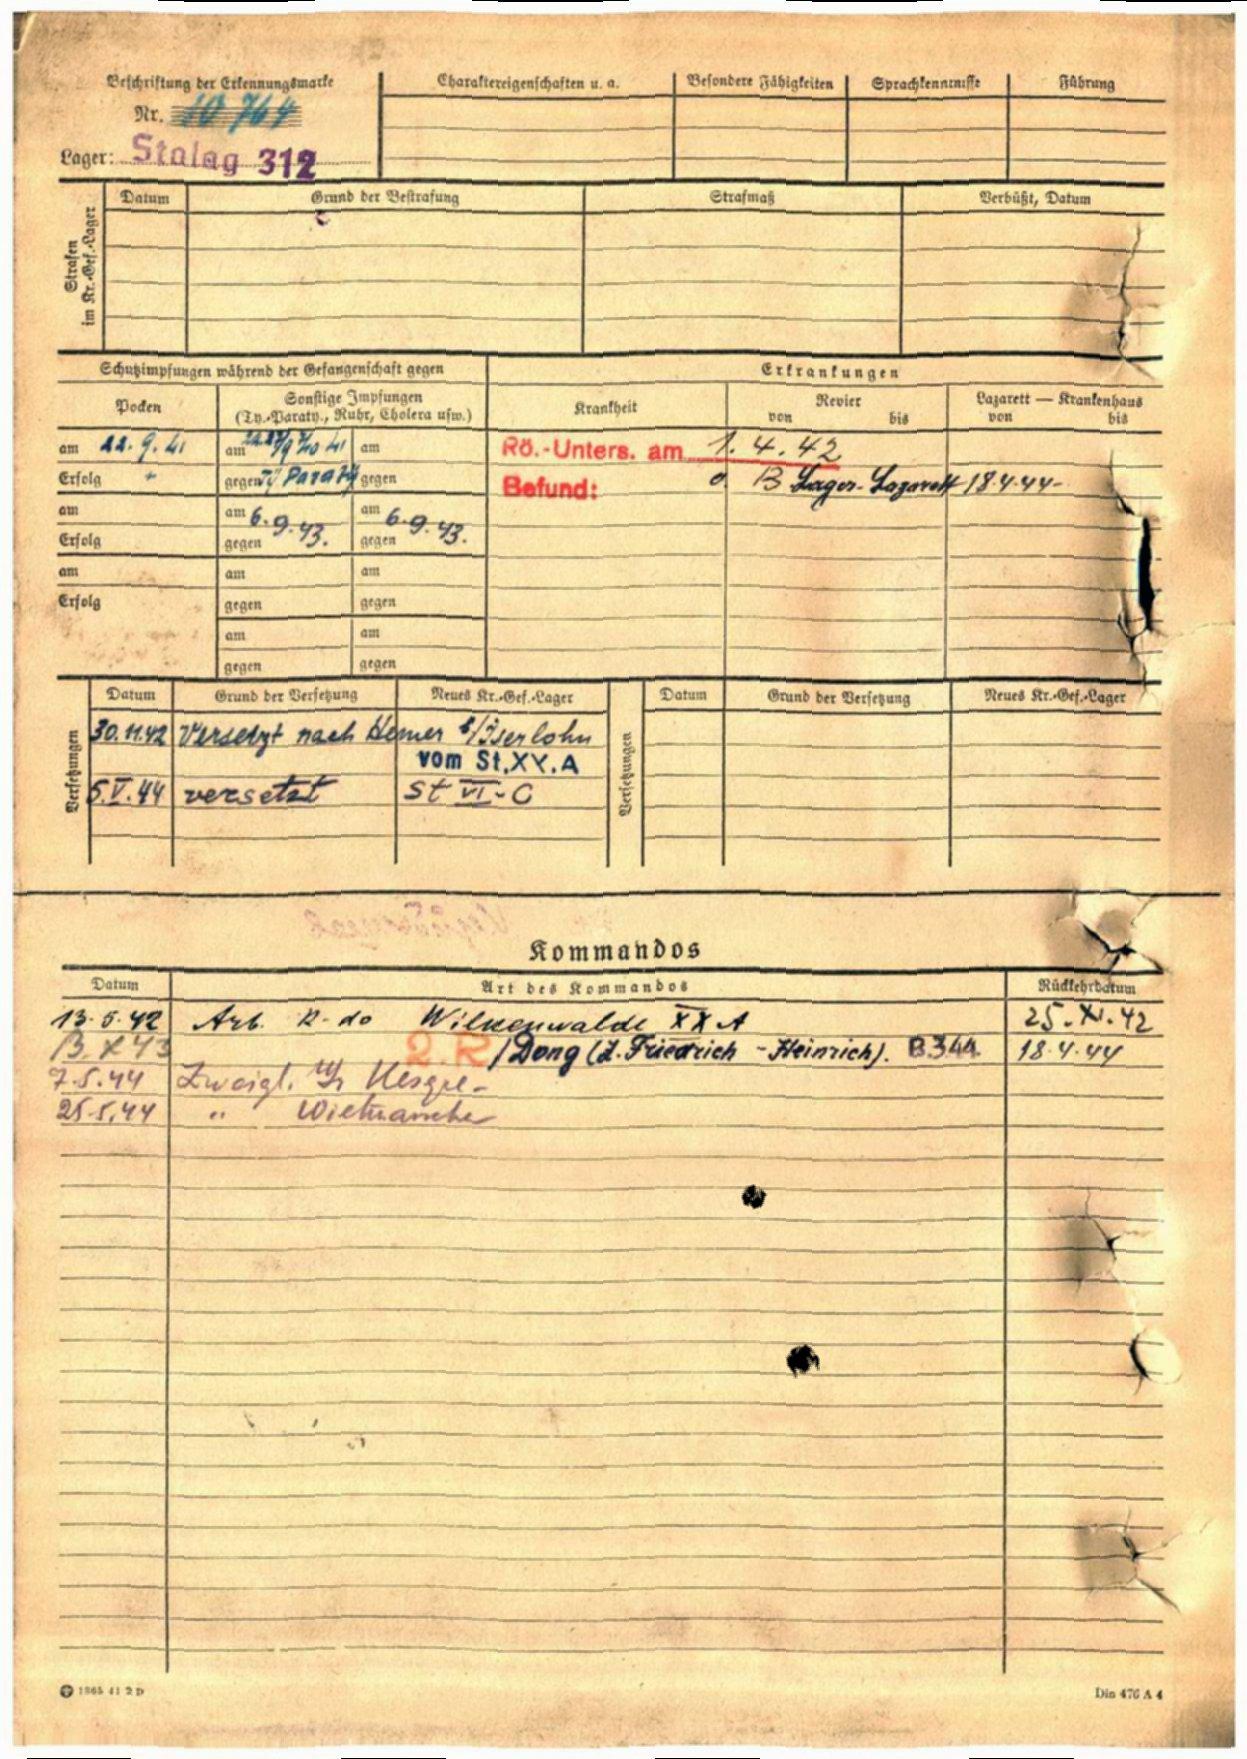 Beschriftung der Erkennungsmarke
Nr. 10 764
Lager: Stalag 312
Charaktereigenschaften u. a.
Besondere Fähigkeiten
Sprachkenntnisse
Führung
Strafen im Kr.-Gef.-Lager
Datum
Grund der Bestrafung
Strafmaß
Verbüßt, Datum
Schutzimpfungen während der Gefangenschaft gegen
Erkrankungen
Pocken
Sonstige Impfungen
(Ty.-Paraty., Ruhr, Cholera usw.)
Krankheit
Revier
von bis
Lazarett — Krankenhaus
von bis
am 22.9.41 am am
Rö.-Unters. am 1.4.42
Erfolg + gegen Ty Paraty gegen
Befund: o. B Lager-Lazarett 18.4.44-
am am 6.9.43. am 6.9.43.
Erfolg gegen gegen
am am am
Erfolg gegen gegen
am am
gegen gegen
Versetzungen
Datum
Grund der Versetzung
Neues Kr.-Gef.-Lager
30.11.42 Versetzt nach Hemer b/Iserlohn
vom St.XX.A
5.V.44 versetzt St VI-C
Versetzungen
Datum
Grund der Versetzung
Neues Kr.-Gef.-Lager
Kommandos
Datum
Art des Kommandos
Rückkehrdatum
13.5.42 Arb. K-do Wilkenwalde XX A 25.XI.42
13.X 43 2.R/Dong (Z.Friedrich-Heinrich). B344 18.4.44
7.5.44 Zweigl.
25.5.44 " Wietmarschen
1865 41 2 D
Din 476 A 4